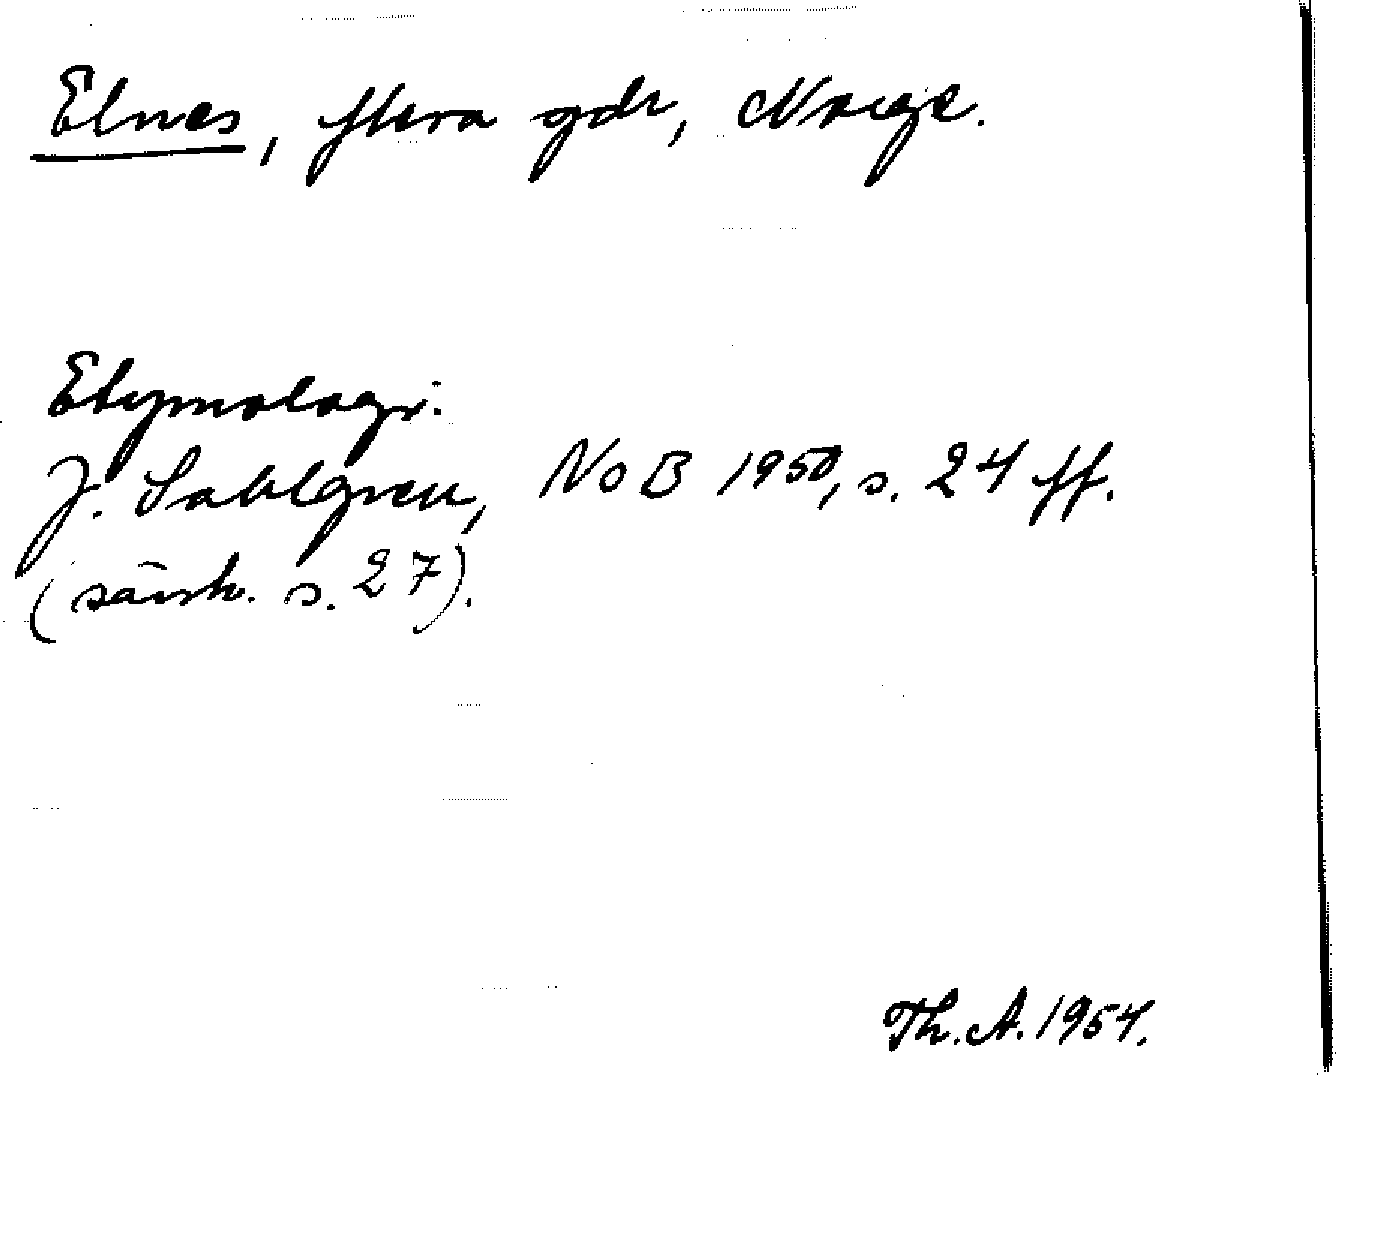 Elnes, flera gdr, Norge.
Etymologi:
J. Sahlgren, NoB 1950, s. 24 ff.
(särsk. s. 27).
Th. A. 1954.